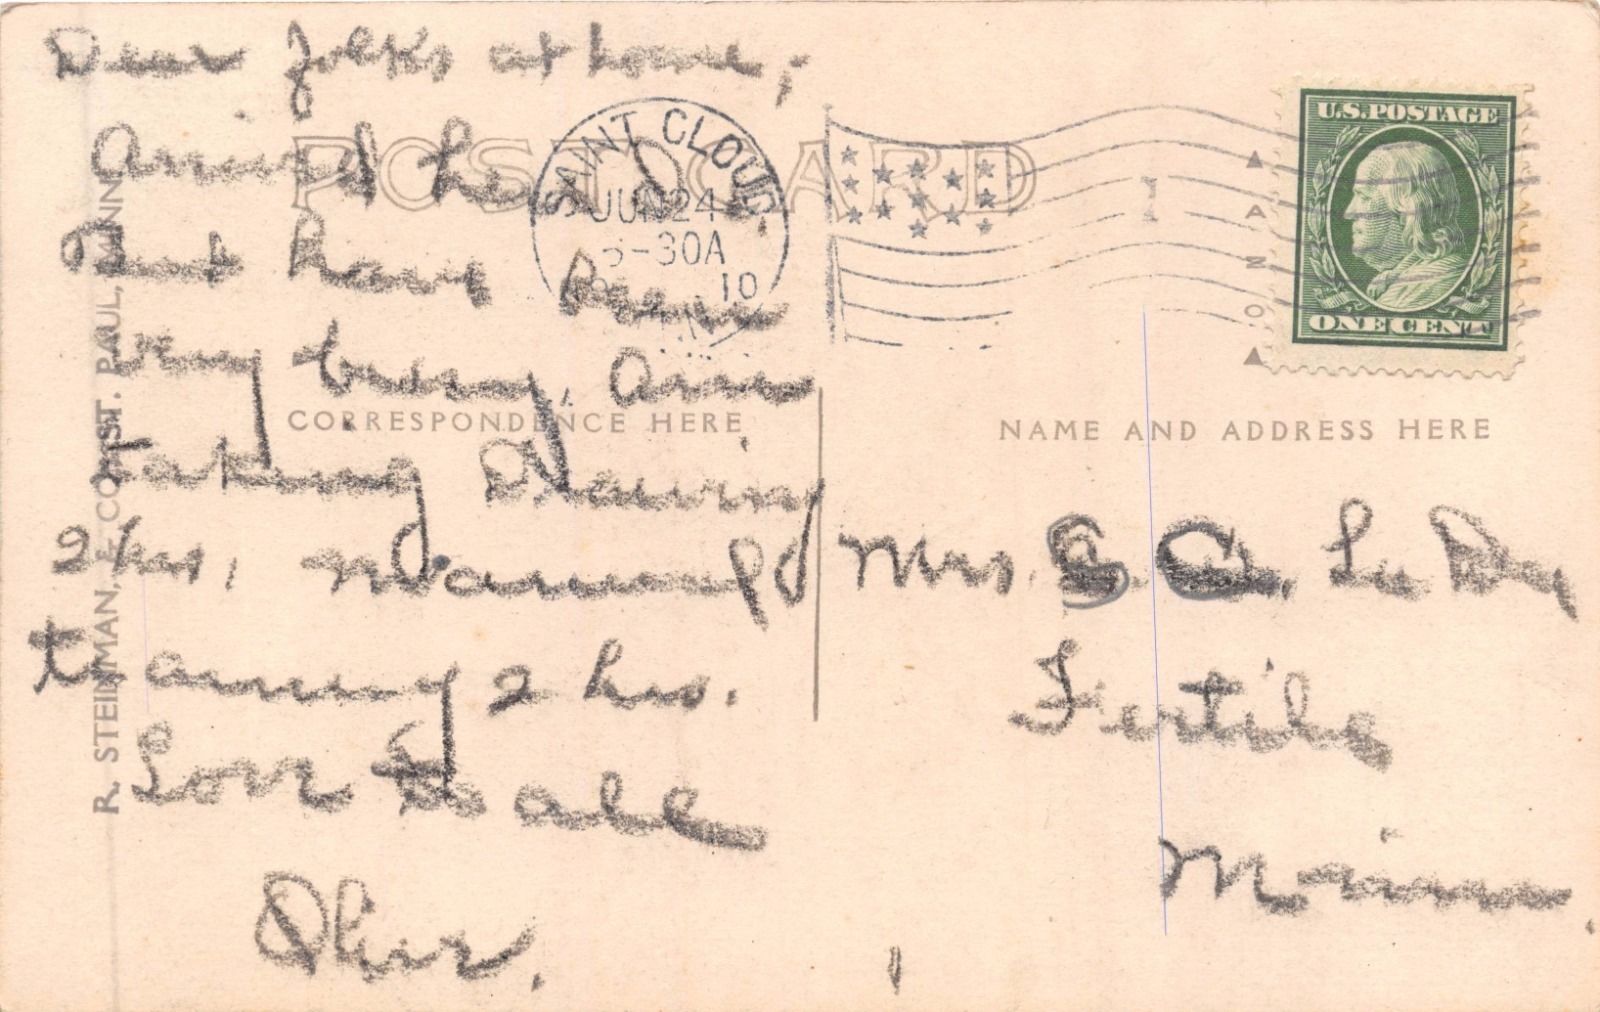 Dear folks at home,
Arrived here O.K.
but have been
very busy. Am
taking Drawing
2 hrs. Manual
training 2 hrs.
Love to all
POST CARD
SAINT CLOUD
JUN 24
-30A
10
MINN
U.S. POSTAGE
ONE CENT
CORRESPONDENCE HERE
NAME AND ADDRESS HERE
Mrs. Le Day
Fertile
Minn.
R. STEINMAN, & CO. ST. PAUL, MINN.